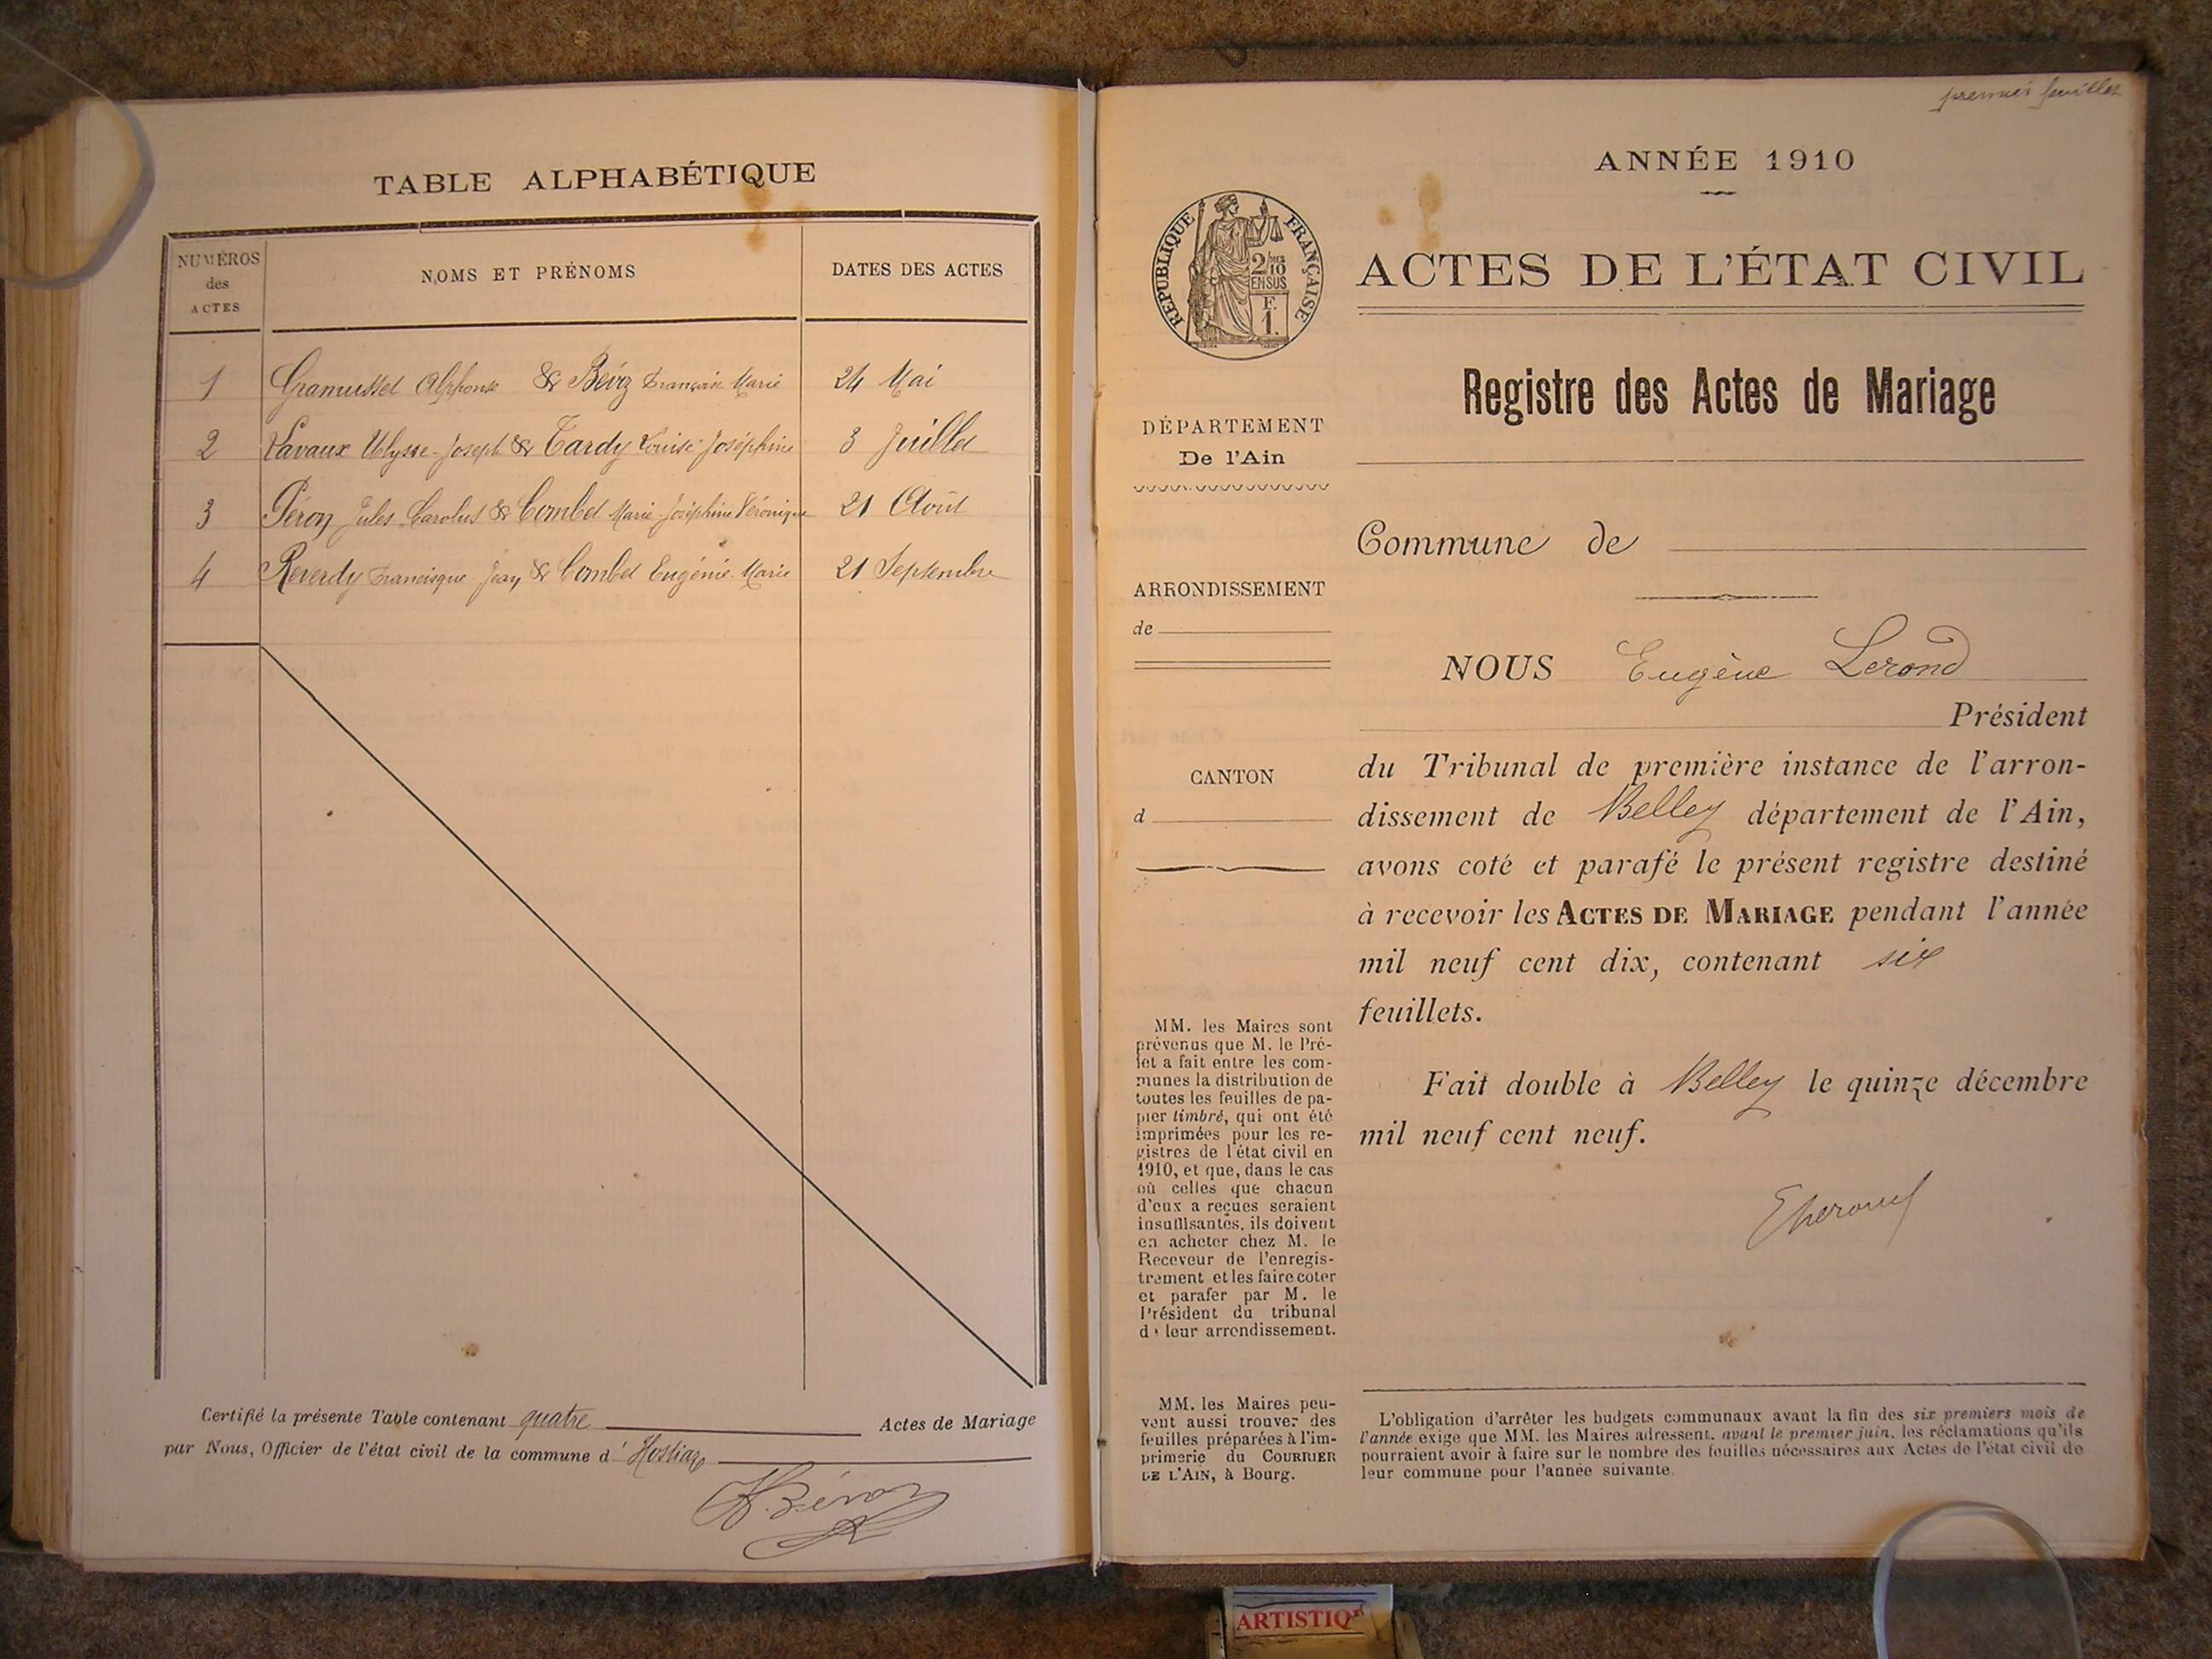 TABLE ALPHABÉTIQUE
NUMÉROS
des
ACTES
NOMS ET PRÉNOMS
DATES DES ACTES
1 Gramusset Alphonse & Béroz Françoise Marie 24 Mai
2 Lavaux Ulysse-Joseph & Tardy Louise-Joséphine 3 Juillet
3 Péron Jules-Carolus & Combet Marie-Joséphine Véronique 21 Août
4 Reverdy Francisque-Jean & Combet Eugénie-Marie 21 Septembre
Certifié la présente Table contenant quatre Actes de Mariage
par Nous, Officier de l'état civil de la commune d' Hostiaz
premier feuillet
ANNÉE 1910
RÉPUBLIQUE FRANÇAISE
2/10
EN SUS
F.
1.
ACTES DE L'ÉTAT CIVIL
Registre des Actes de Mariage
DÉPARTEMENT
De l'Ain
Commune de
ARRONDISSEMENT
de
CANTON
d
NOUS Eugène Lerond
Président
du Tribunal de première instance de l'arron-
dissement de Belley département de l'Ain,
avons coté et parafé le présent registre destiné
à recevoir les ACTES DE MARIAGE pendant l'année
mil neuf cent dix, contenant six
feuillets.
Fait double à Belley le quinze décembre
mil neuf cent neuf.
MM. les Maires sont
prévenus que M. le Pré-
fet a fait entre les com-
munes la distribution de
toutes les feuilles de pa-
pier timbré, qui ont été
imprimées pour les re-
gistres de l'état civil en
1910, et que, dans le cas
où celles que chacun
d'eux a reçues seraient
insuffisantes, ils doivent
en acheter chez M. le
Receveur de l'enregis-
trement et les faire coter
et parafer par M. le
Président du tribunal
de leur arrondissement.
MM. les Maires peu-
vent aussi trouver des
feuilles préparées à l'im-
primerie du COURRIER
DE L'AIN, à Bourg.
L'obligation d'arrêter les budgets communaux avant la fin des six premiers mois de
l'année exige que MM. les Maires adressent, avant le premier juin, les réclamations qu'ils
pourraient avoir à faire sur le nombre des feuilles nécessaires aux Actes de l'état civil de
leur commune pour l'année suivante.
ARTISTIQ